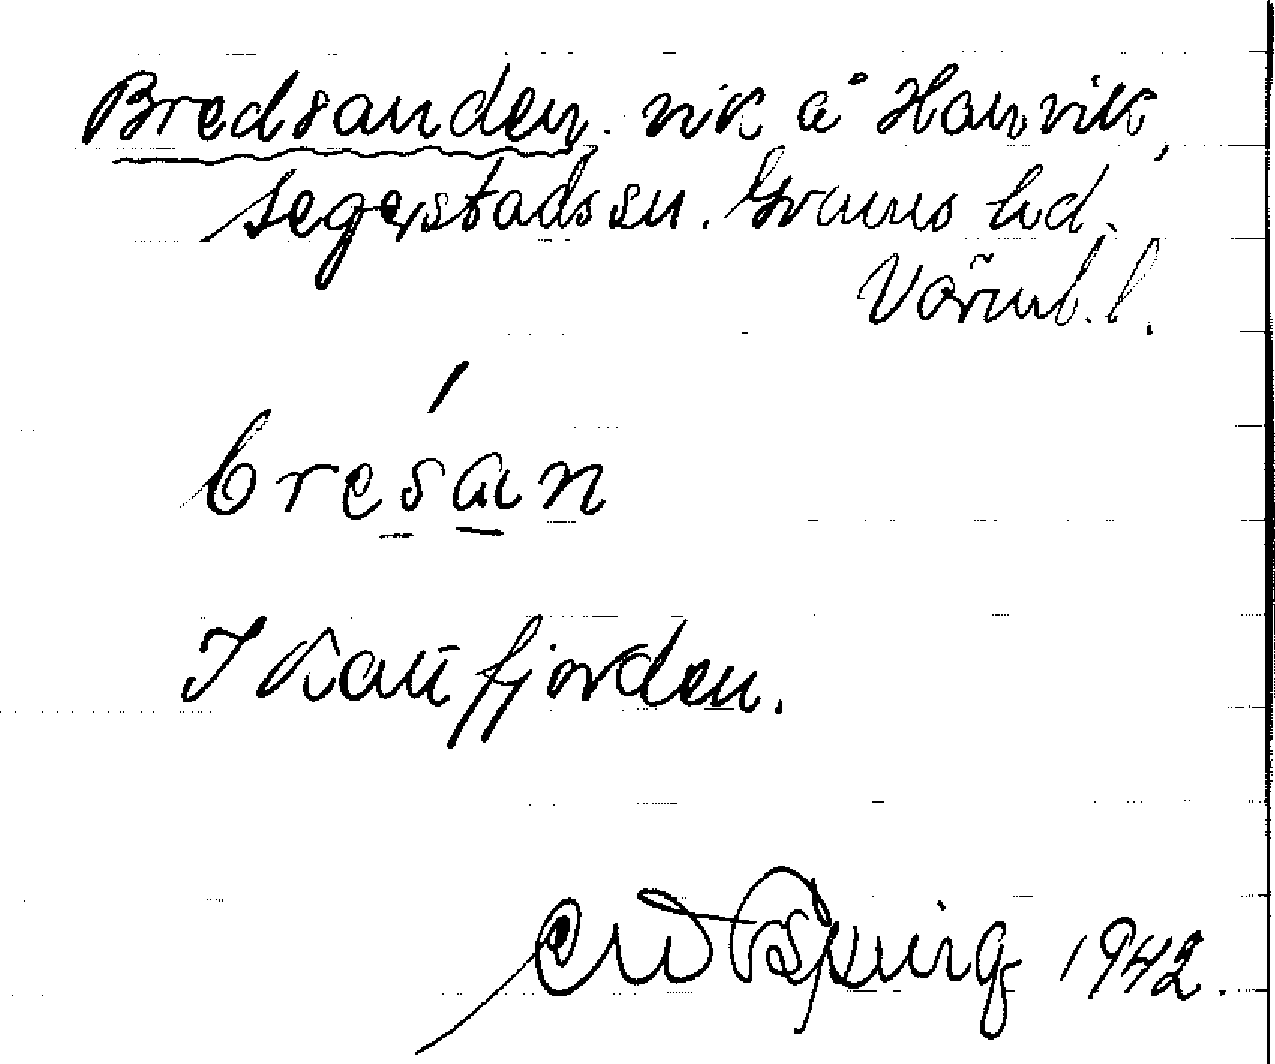 Bredsanden, vik å Hanvik,
Segerstads sn. Grums hd.
Värml. l.
bresan
I Kattfjorden.
1942.